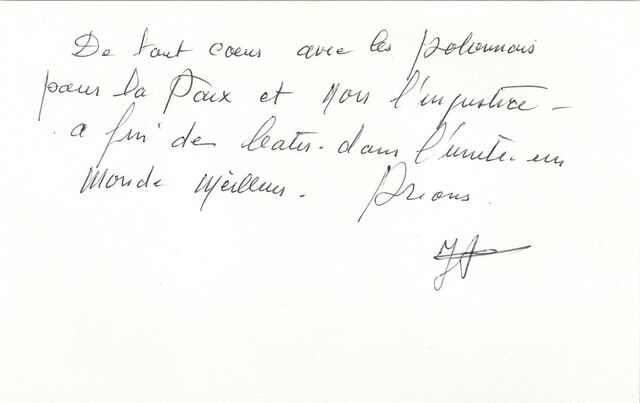 De tout coeur avec les polonnais
pour la Paix et Non l'injustice -
a fin de beater. dans l'unite. un
Monde Meilleur. Prions